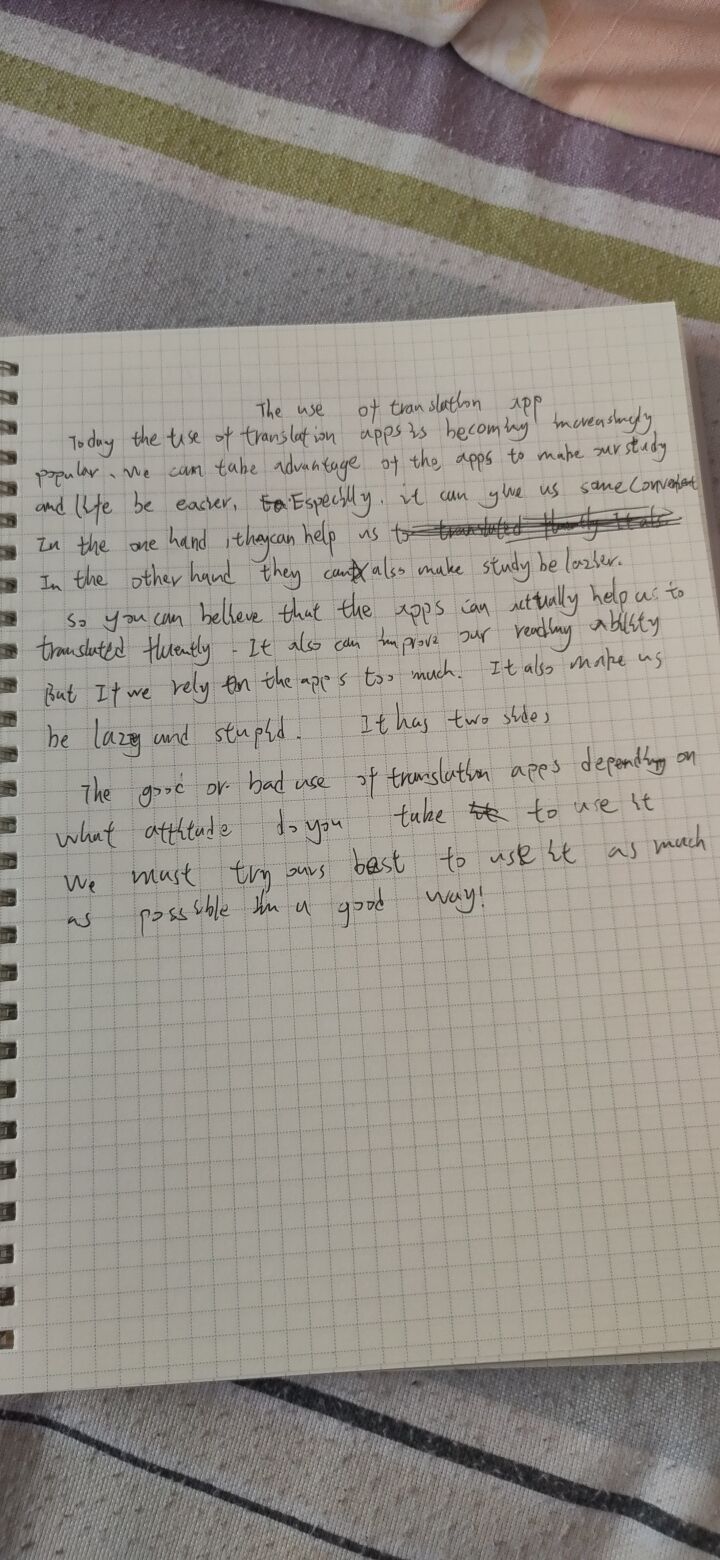 The use of translation app
Today the use of translation apps is becoming increasingly
popular. We can take advantage of the apps to make our study
and life be easier. Especilly. it can give us some convenient
In the one hand, they can help us
In the other hand they can also make study be lazier.
So you can believe that the apps can actually help us to
translated fluently. It also can improve our reading ability
But If we rely on the app s too much. It also make us
be lazy and stupid. It has two sides
The good or bad use of translation apps depending on
what attitude do you take to use it
We must try ours best to use it as much
as possible in a good way!